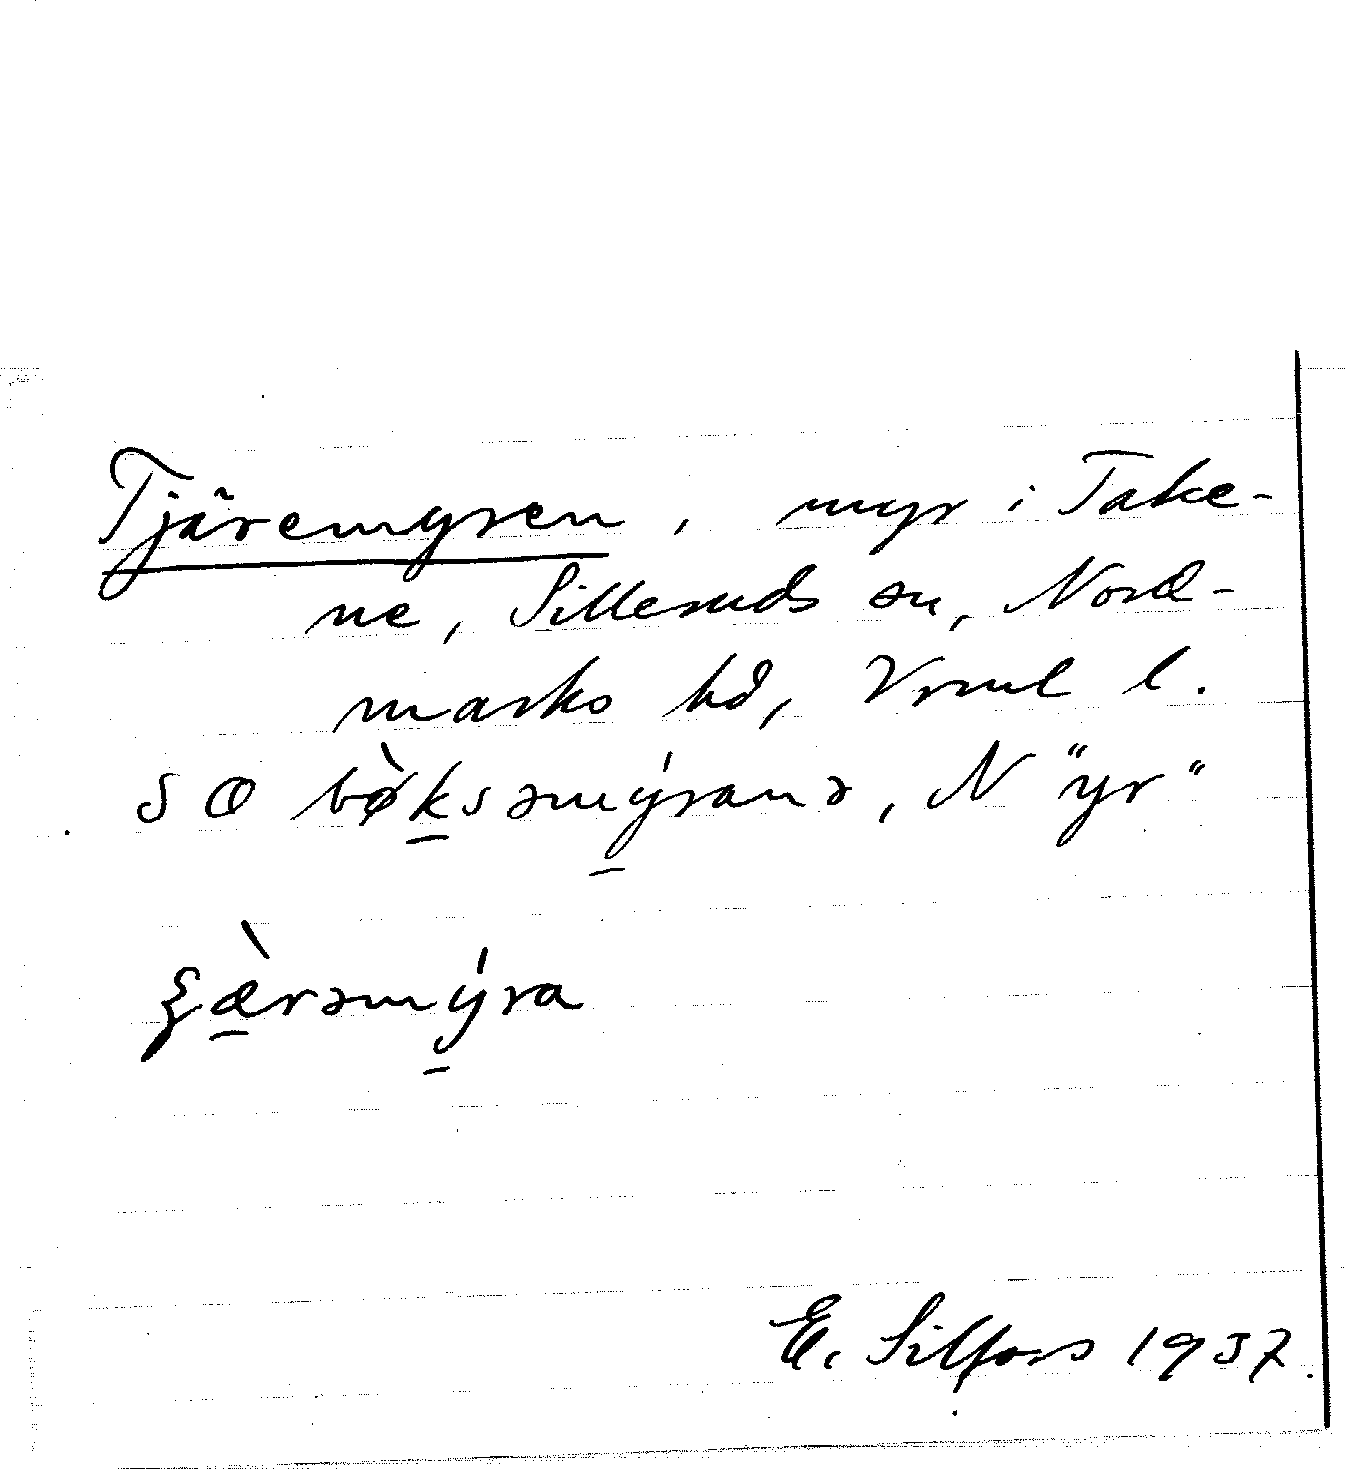 Tjäremyren, myr i Take-
ne, Silleruds sn, Nord-
marks hd, Vrml l.
SO bø̀ksəmýranə, N "yr"
ξæ̀rəmýra
E. Silfors 1937.